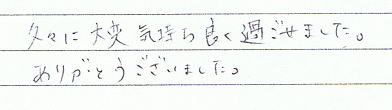 久々に大変気持ち良く過ごせました。
ありがとうございました。